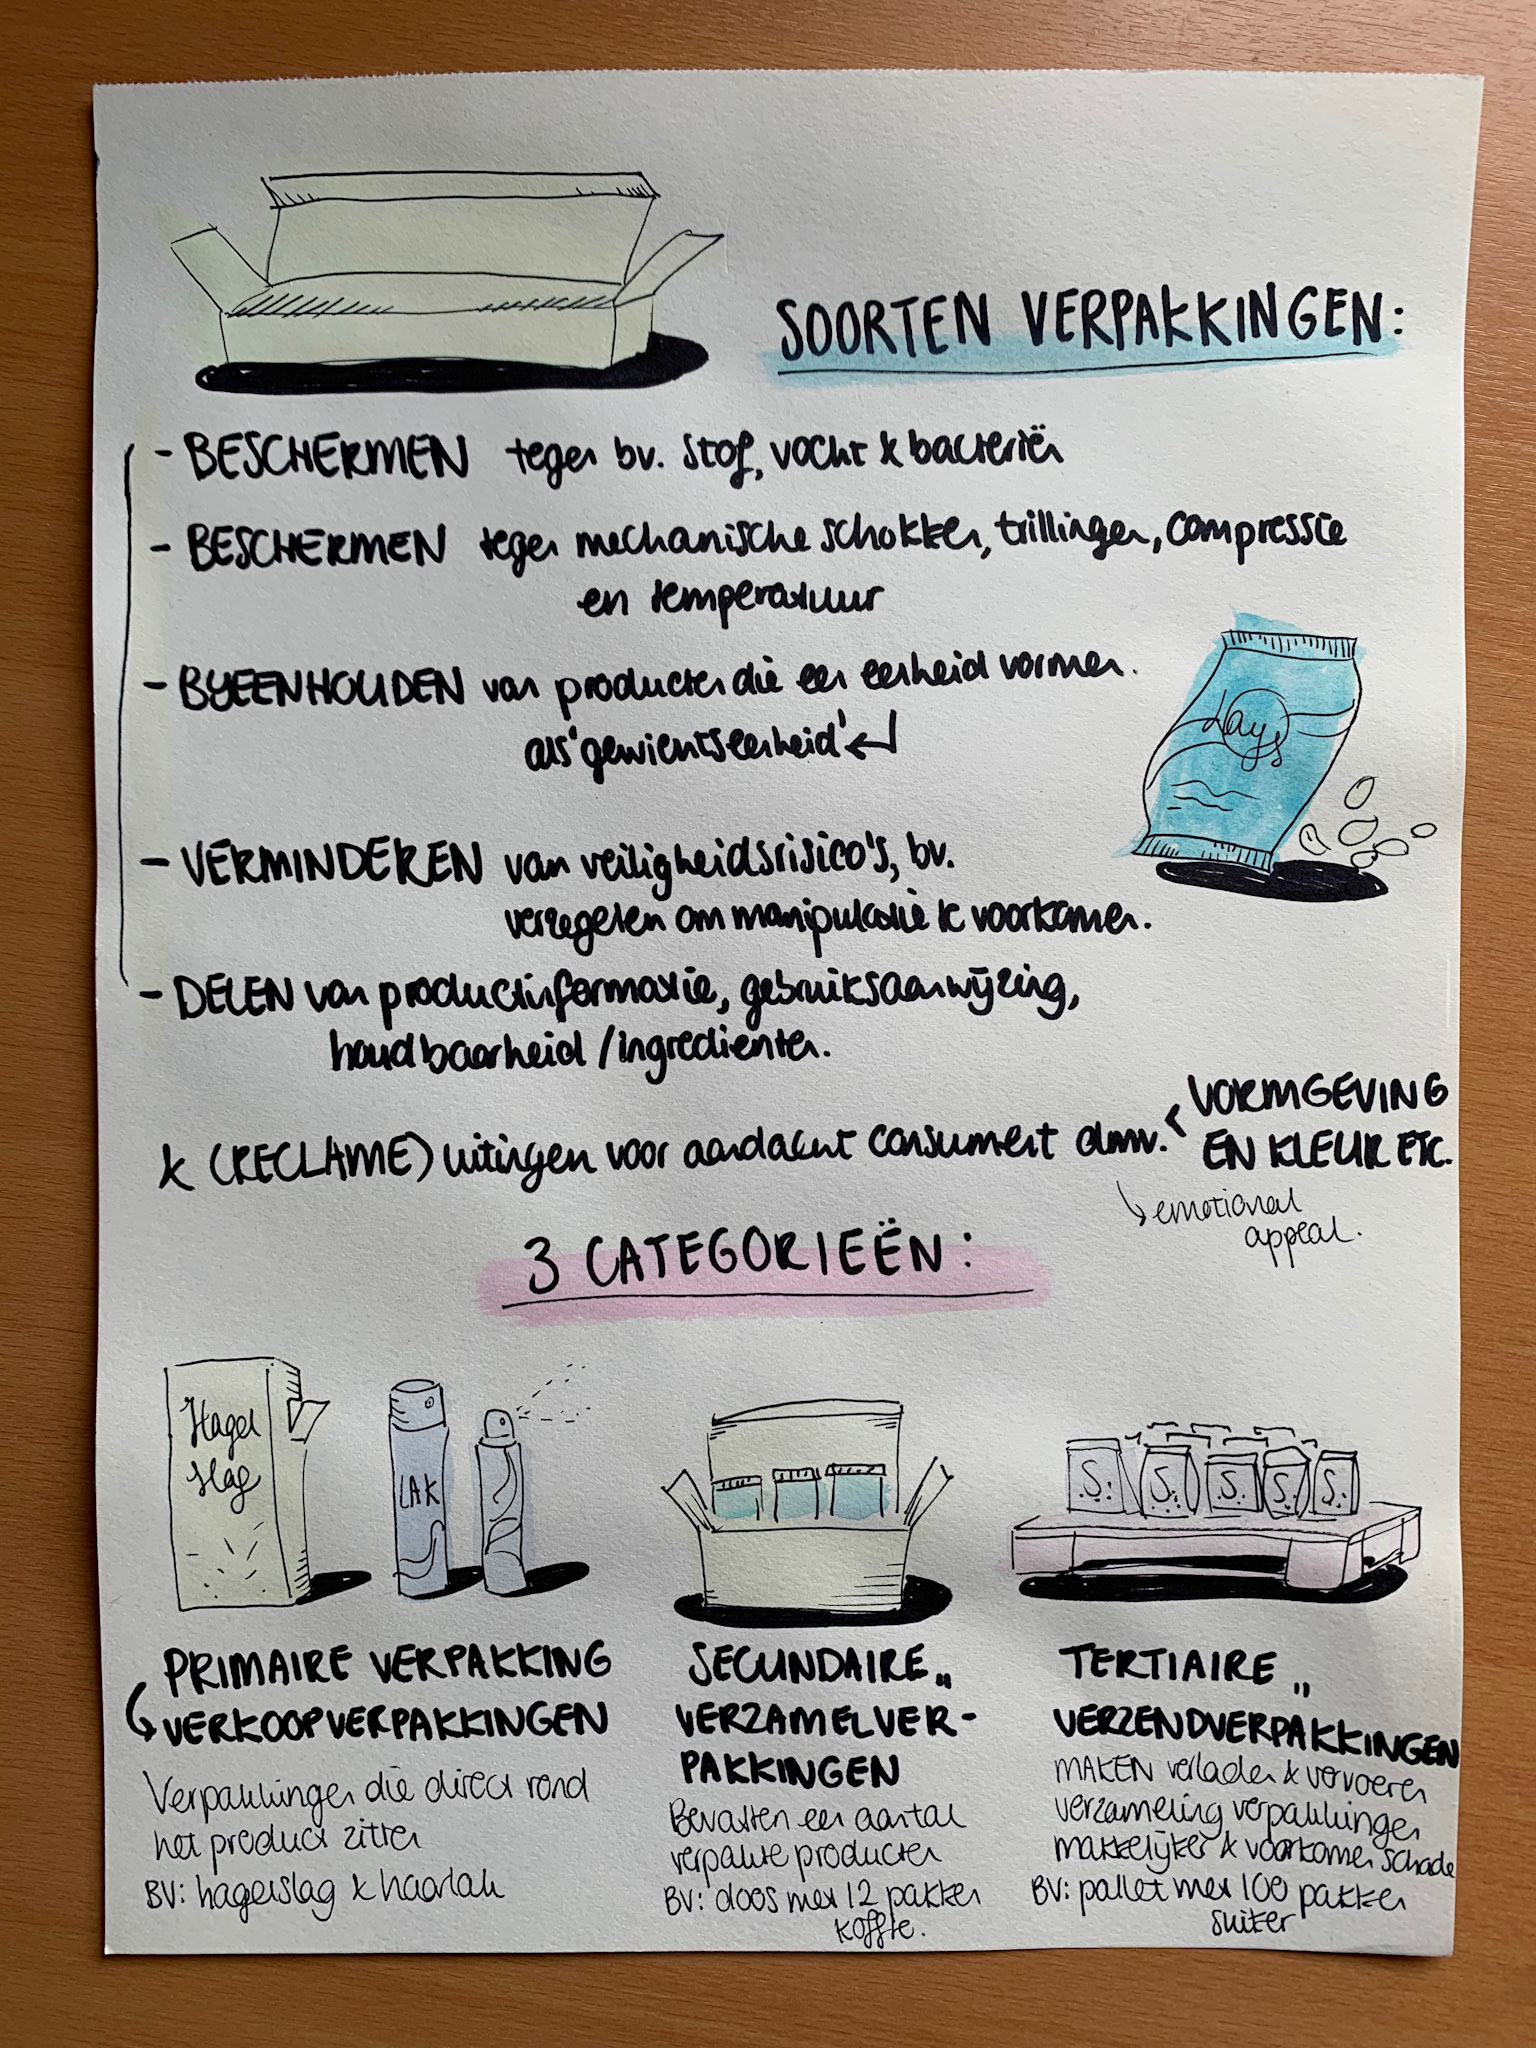 SOORTEN VERPAKKINGEN:
- BESCHERMEN tegen bv. stof, vocht & bacteriën
- BESCHERMEN tegen mechanische schokken, trillingen, compressie
en temperatuur
- BIJEENHOUDEN van producten die een eenheid vormen.
als 'gewichtseenheid' ↵
Lays
- VERMINDEREN van veiligheidsrisico's, bv.
verzegelen om manipulatie te voorkomen.
- DELEN van productinformatie, gebruiksaanwijzing,
houdbaarheid / ingrediënten.
& (RECLAME) uitingen voor aandacht consument dmv. < VORMGEVING
EN KLEUR ETC.
↳ emotional
appeal.
3 CATEGORIEËN:
Hagel
slag
LAK
S. S. S. S. S.
PRIMAIRE VERPAKKING
VERKOOPVERPAKKINGEN
Verpakkingen die direct rond
het product zitten
BV: hagelslag & haarlak
SECUNDAIRE „
VERZAMELVER-
PAKKINGEN
Bevatten een aantal
verpakte producten
BV: doos met 12 pakken
koffie.
TERTIAIRE „
VERZENDVERPAKKINGEN
MAKEN verladen & vervoeren
verzameling verpakkingen
makkelijker & voorkomen schade
BV: pallet met 100 pakken
suiker